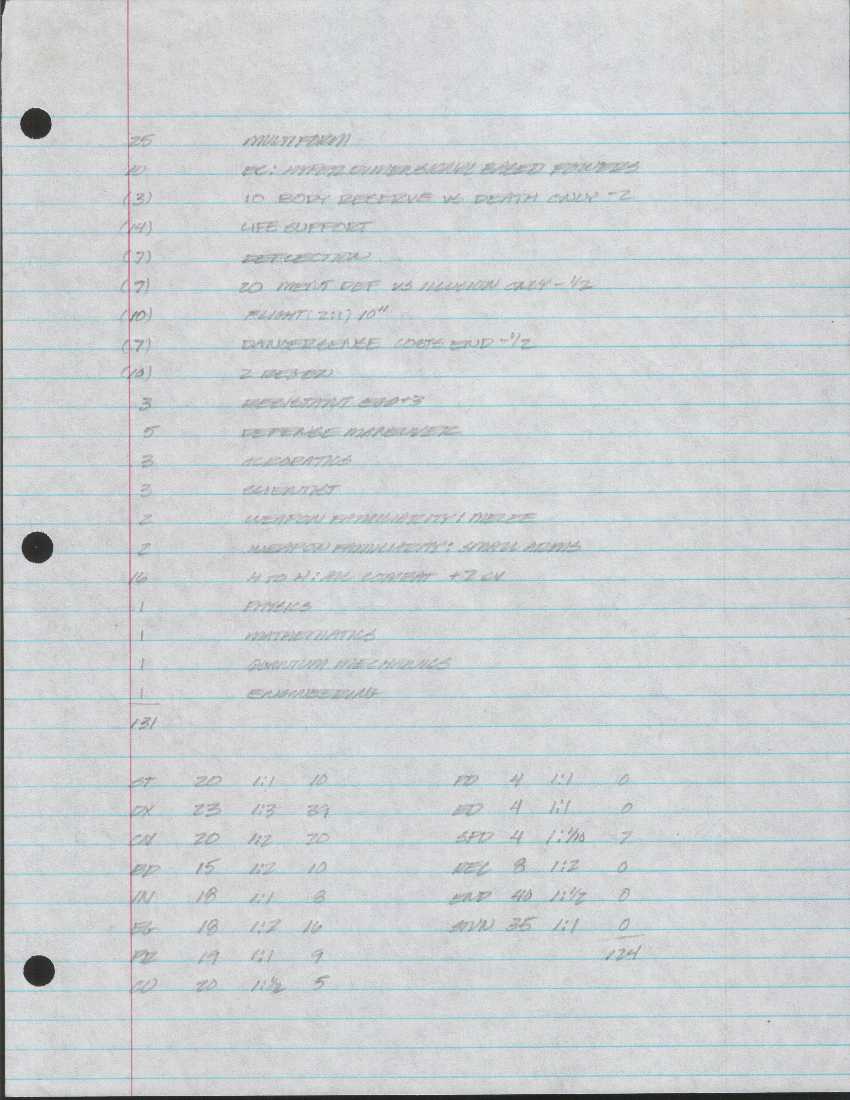 25 MULTIFORM
10 EC: HYPERDIMENSIONAL BASED POWERS
(3) 10 BODY RESERVE VS DEATH ONLY -2
(14) LIFE SUPPORT
(7) DEFLECTION
(7) 20 MENT DEF VS ILLUSION ONLY -1/2
(10) FLIGHT (2:1) 10"
(7) DANGERSENSE COSTS END -1/2
(10) 2 REGEN
3 RESISTANT EGO+3
5 DEFENSE MANEUVER
3 ACROBATICS
3 SCIENTIST
2 WEAPON FAMILIARITY: MELEE
2 WEAPON FAMILIARITY: SMALL ARMS
16 H TO H: ALL COMBAT +2 CV
1 PHYSICS
1 MATHEMATICS
1 QUANTUM MECHANICS
1 ENGINEERING
131
ST 20 1:1 10 PD 4 1:1 0
DX 23 1:3 39 ED 4 1:1 0
CN 20 1:2 20 SPD 4 1:1/10 7
BD 15 1:2 10 REC 8 1:2 0
IN 18 1:1 8 END 40 1:1/2 0
EG 18 1:2 16 STUN 35 1:1 0
PR 19 1:1 9 124
CO 20 1:1/2 5